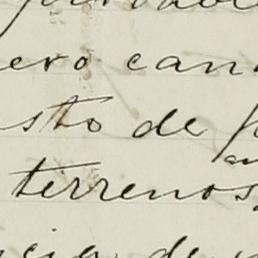 ero can
sto de
an
terrenos
cia de